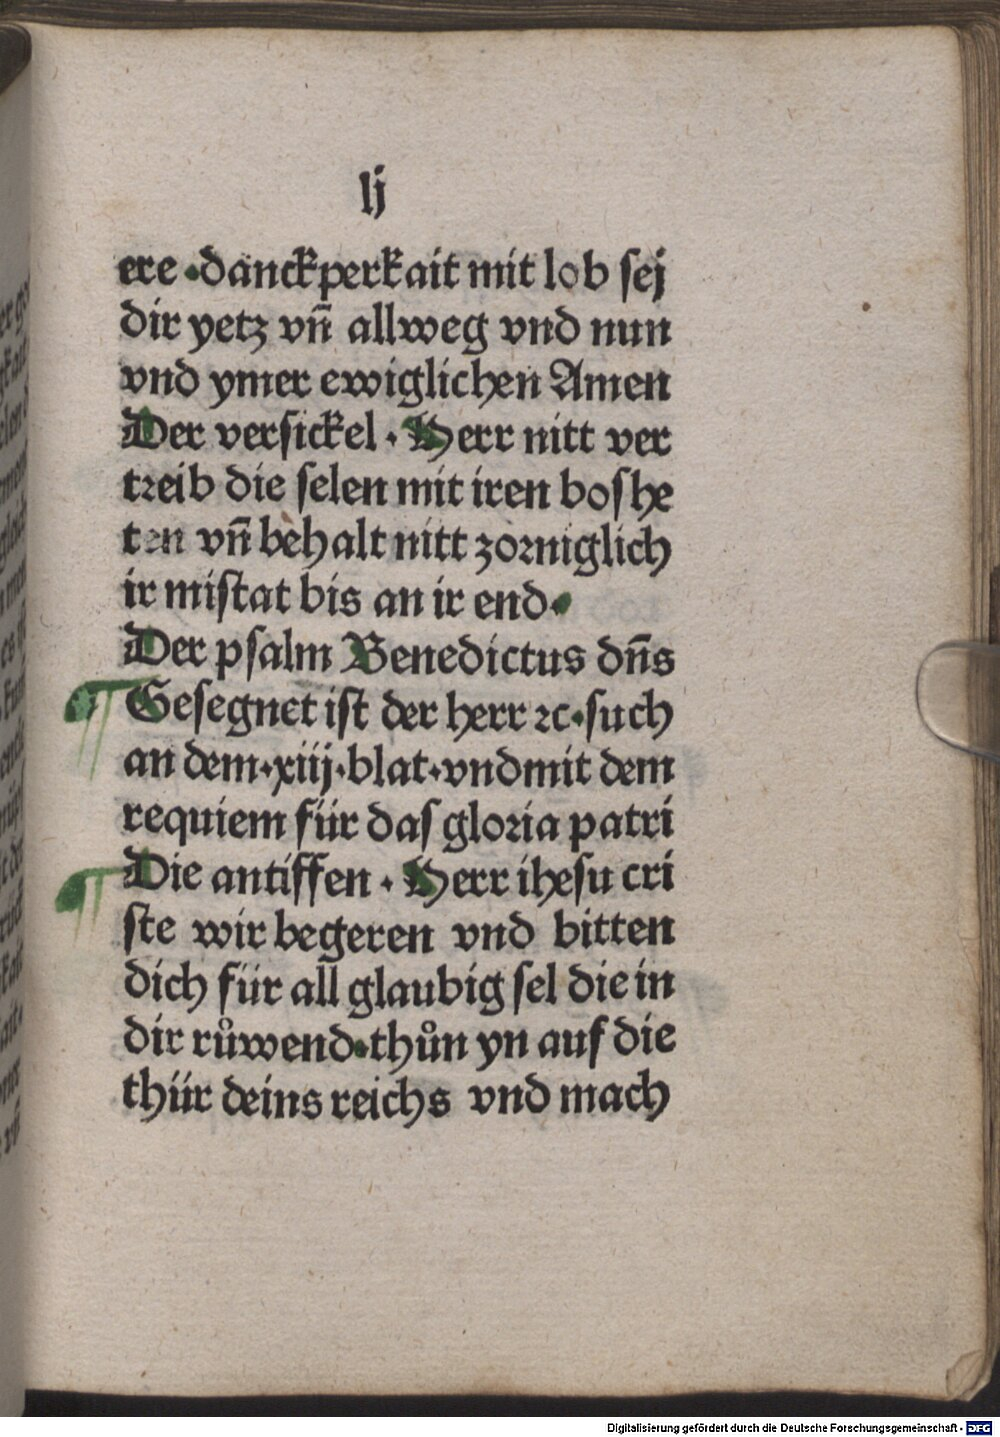 lj
ere ·danckperkait mit lob sej
dir yetz vn̄ allweg vnd nun
vnd ymer ewiglichen Amen
Der versickel · Herr nitt ver
treib die selen mit iren boshe
ten vn̄ behalt nitt zorniglich
ir mistat bis an ir end·
Der psalm Benedictus dn̄s
Gesegnet ist der herr ꝛc·such
an dem·xiij·blat·vndmit dem
requiem für das gloria patri
Die antiffen · Herr ihesu cri
ste wir begeren vnd bitten
dich für all glaubig sel die in
dir růwend·thůn yn auf die
thür deins reichs vnd mach
Digitalisierung gefördert durch die Deutsche Forschungsgemeinschaft - DFG